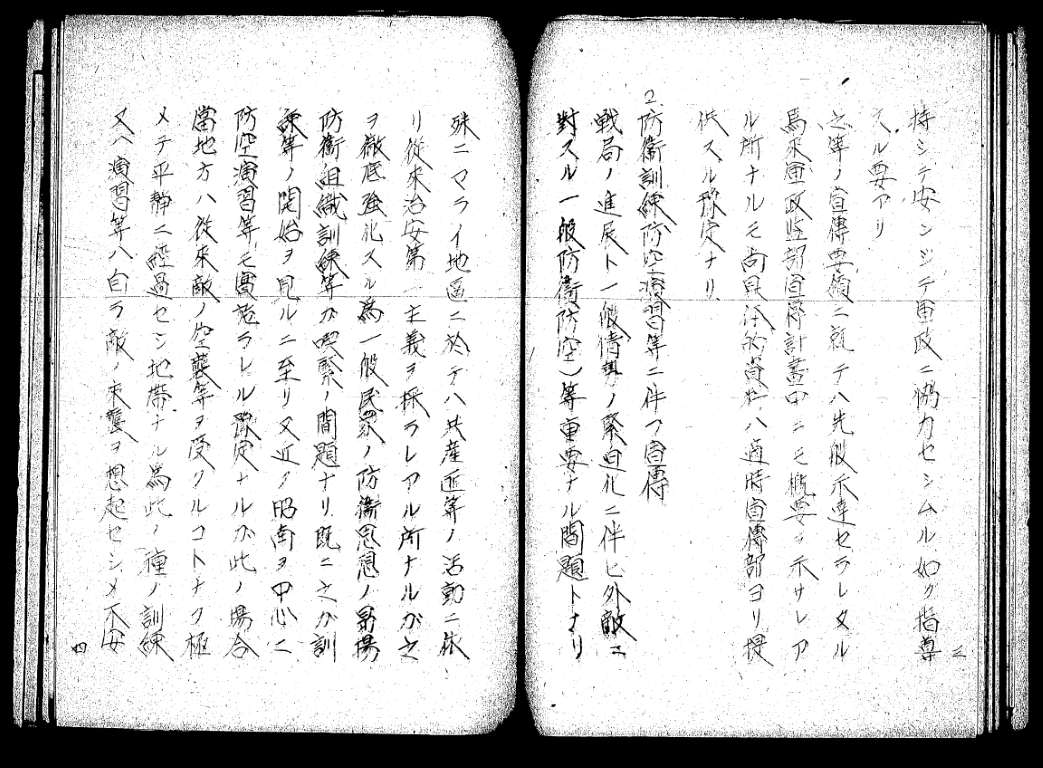 持シテ安ンジテ軍政ニ協力セシムル如ク指導
スル要アリ
之等ノ宣傳要領ニ就テハ先般示達セラレタル
馬來軍政監部宣傳計畫中ニモ概要ヲ示サレア
ル所ナルモ尚具体的資料ハ適時宣傳部ヨリ提
供スル豫定ナリ
三
2.防衛訓練防空演習等ニ伴フ宣傳
戰局ノ進展ト一般情勢ノ緊迫化ニ伴ヒ外敵ニ
對スル一般防衛(防空)等重要ナル問題トナリ
殊ニマライ地區ニ於テハ共産匪等ノ活動ニ依
リ從來治安第一主義ヲ採ラレアル所ナルガ之
ヲ徹底強化スル為一般民衆ノ防衛思想ノ昻揚
防衛組織訓練等ガ喫緊ノ問題ナリ既ニ之ガ訓
練等ノ開始ヲ見ルニ至リ又近ク昭南ヲ中心ニ
防空演習等モ實施ラレル豫定ナルガ此ノ場合
當地方ハ從來敵ノ空襲等ヲ受クルコトナク極
メテ平靜ニ經過セシ地帶ナル為此ノ種ノ訓練
又ハ演習等ハ自ラ敵ノ來襲ヲ想起セシメ不安
四